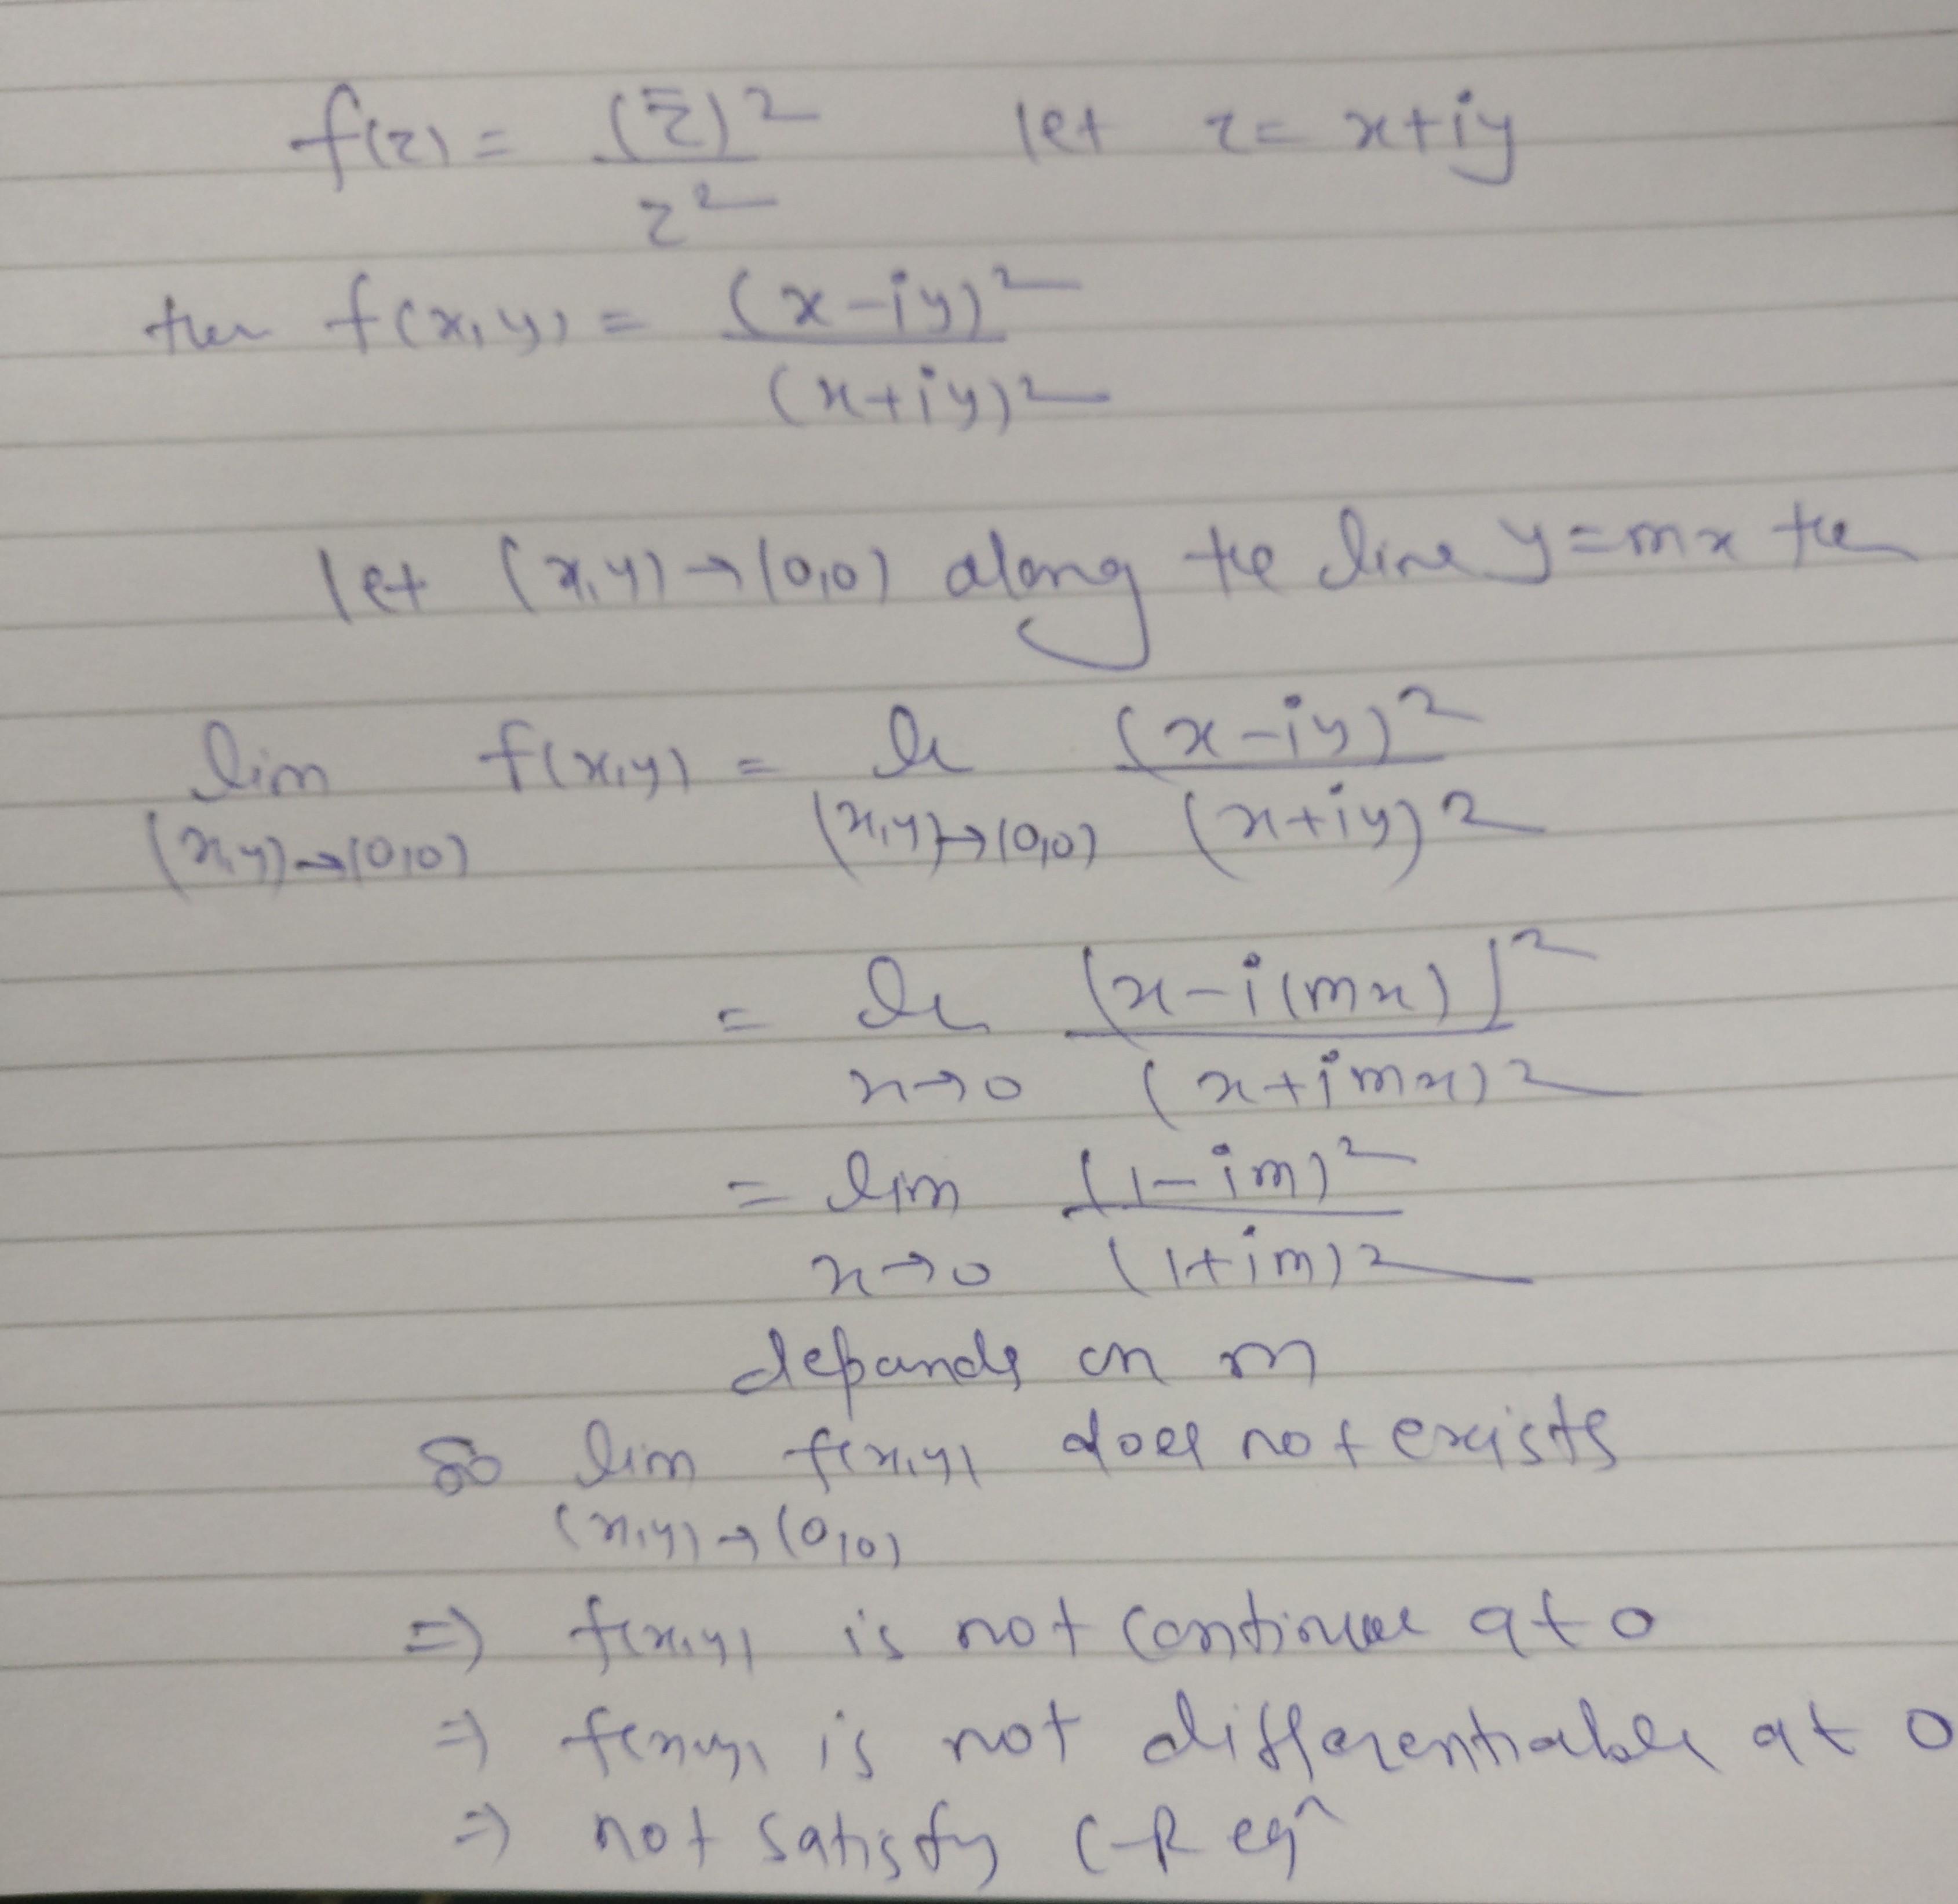 f(z) = (z̄)² / z² let z = x+iy
then f(x,y) = (x-iy)² / (x+iy)²
let (x,y)→(0,0) along the line y=mx the
lim (x,y)→(0,0) f(x,y) = li (x,y)→(0,0) (x-iy)² / (x+iy)²
= li x→0 (x-i(mx))² / (x+imx)²
= lim x→0 (1-im)² / (1+im)²
depands on m
So lim (x,y)→(0,0) f(x,y) does not exists
⇒ f(x,y) is not continuous at 0
⇒ f(x,y) is not differentiable at 0
⇒ not satisfy C-R eqⁿ